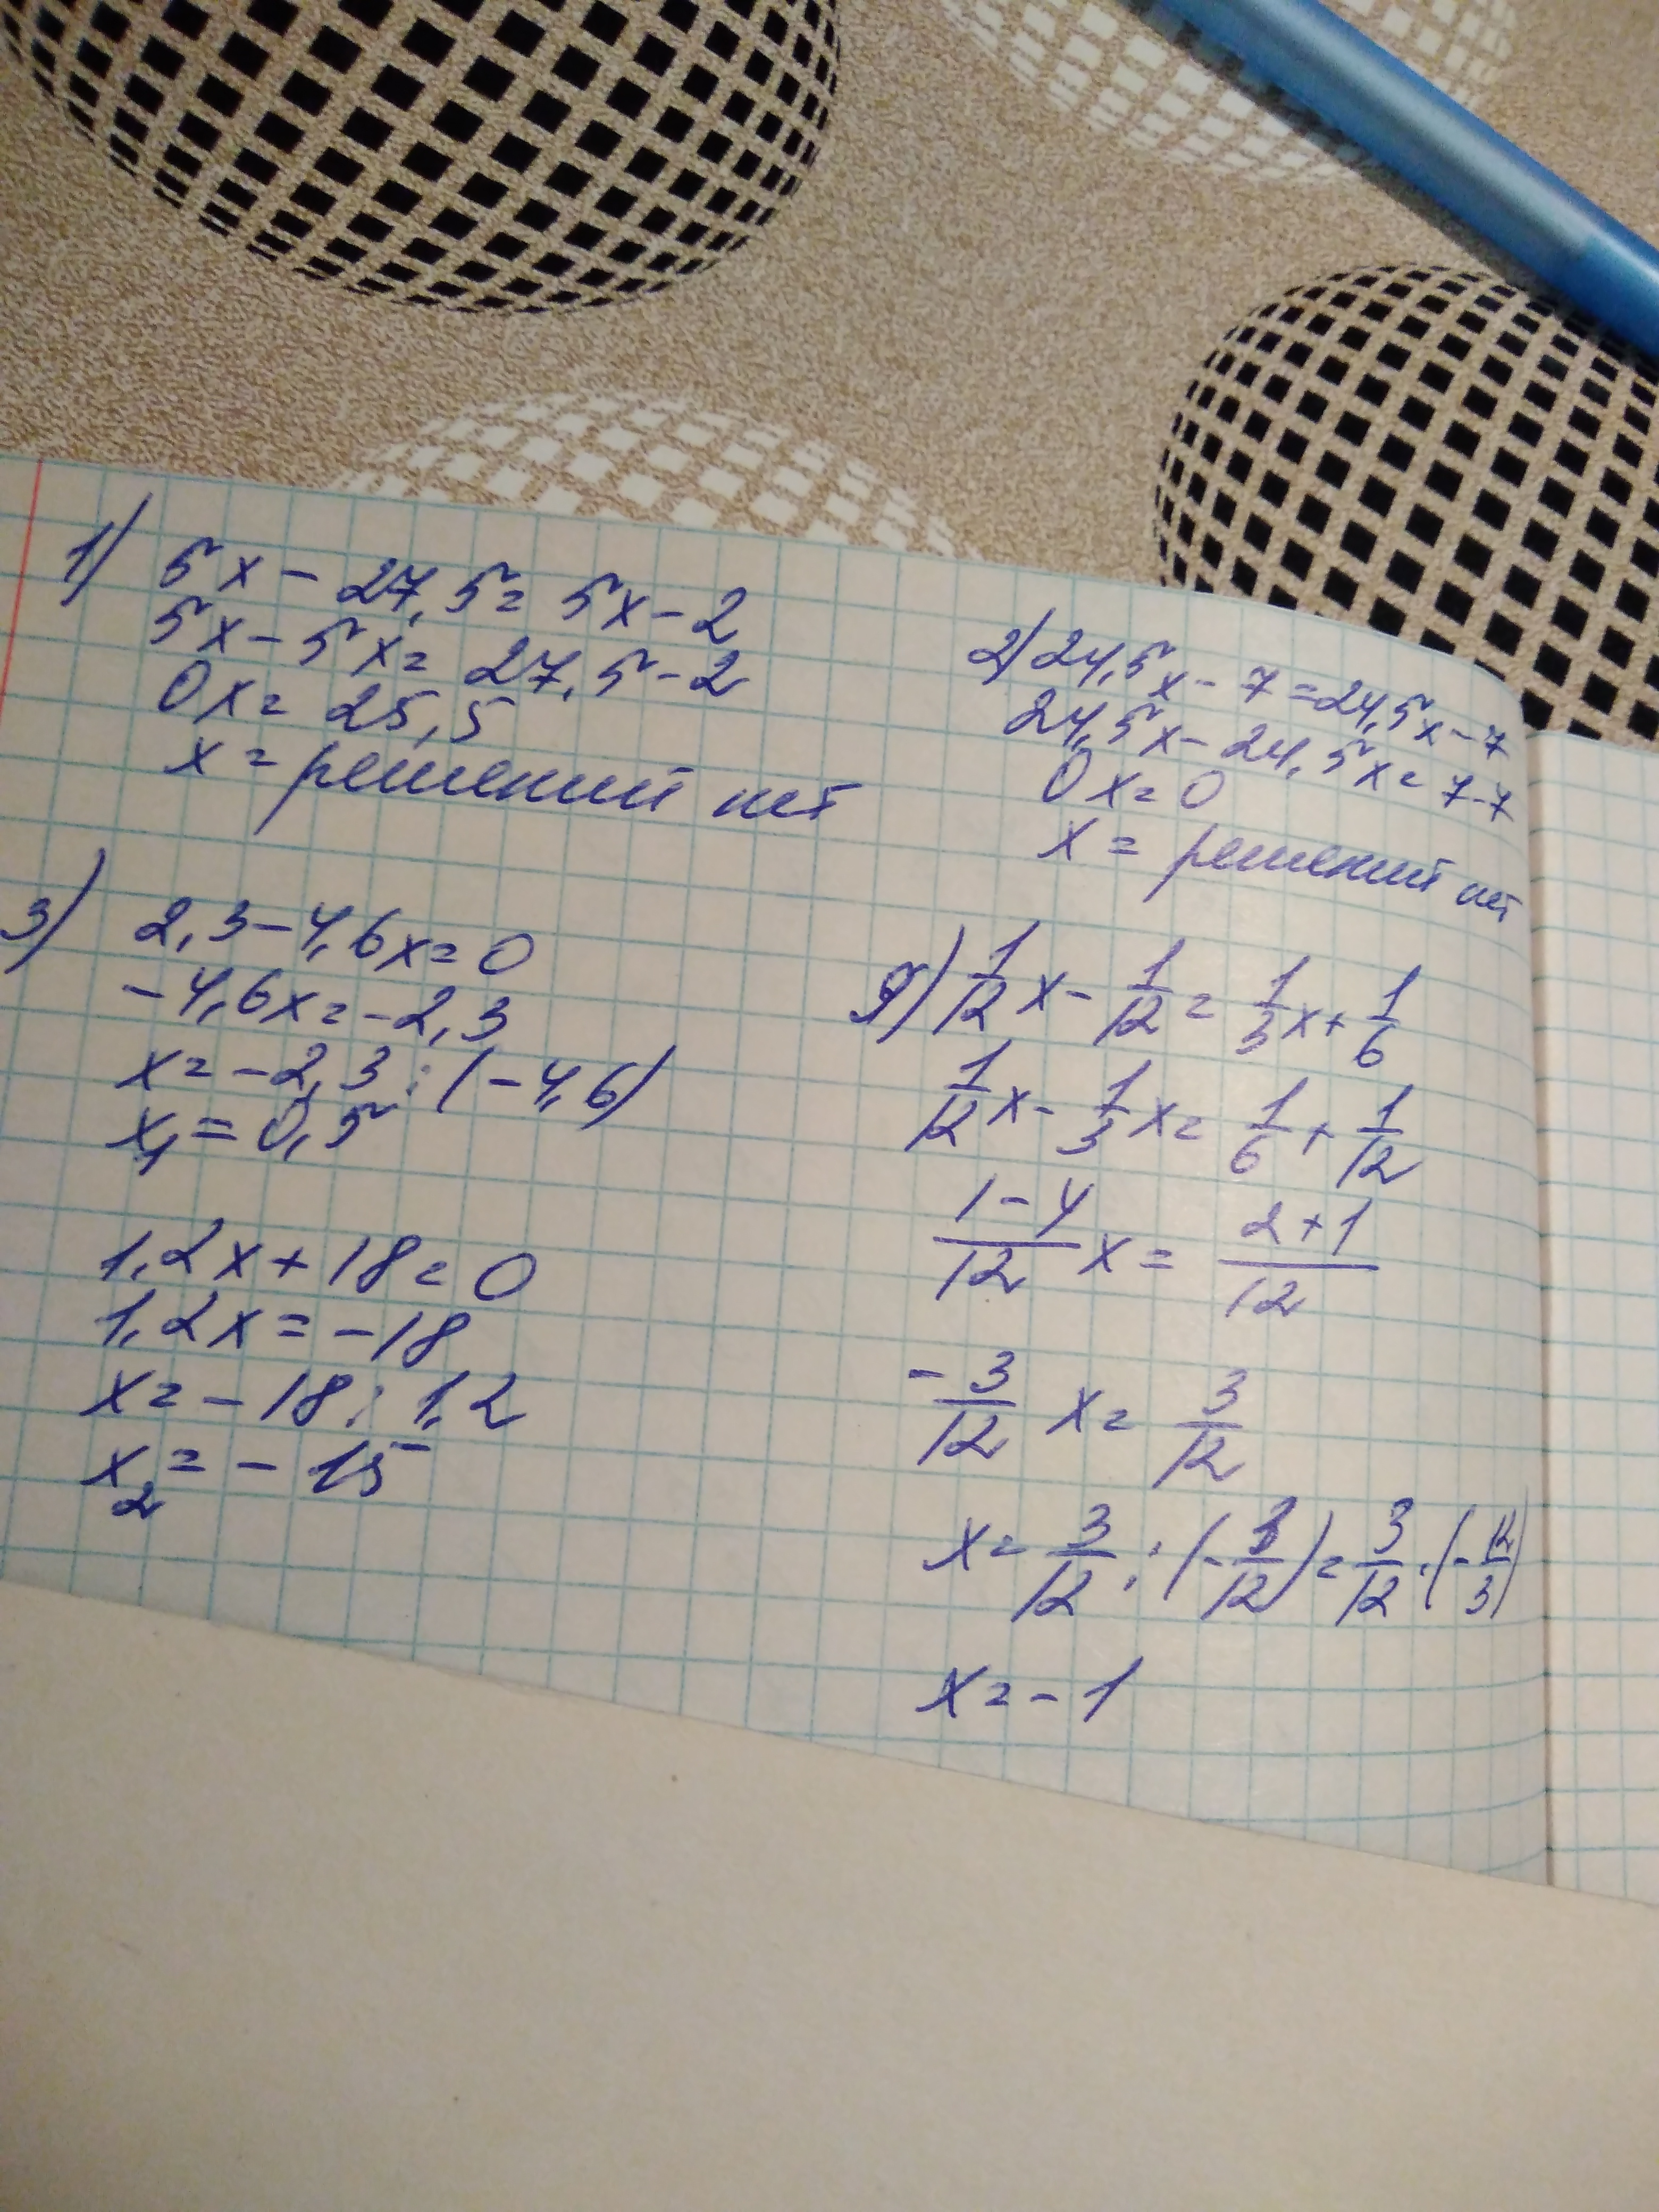 1) 5x - 27,5 = 5x - 2
5x - 5x = 27,5 - 2
0x = 25,5
x = решений нет
2) 24,5x - 7 = 24,5x - 7
24,5x - 24,5x = 7-7
0x = 0
x = решений нет
3) 2,3 - 4,6x = 0
-4,6x = -2,3
x = -2,3 : (-4,6)
x₁ = 0,5
1,2x + 18 = 0
1,2x = -18
x = -18 : 1,2
x₂ = -15
9) 1/12 x - 1/12 = 1/3 x + 1/6
1/12 x - 1/3 x = 1/6 + 1/12
1-4/12 x = 2+1/12
-3/12 x = 3/12
x = 3/12 : (-3/12) = 3/12 · (-12/3)
x = -1